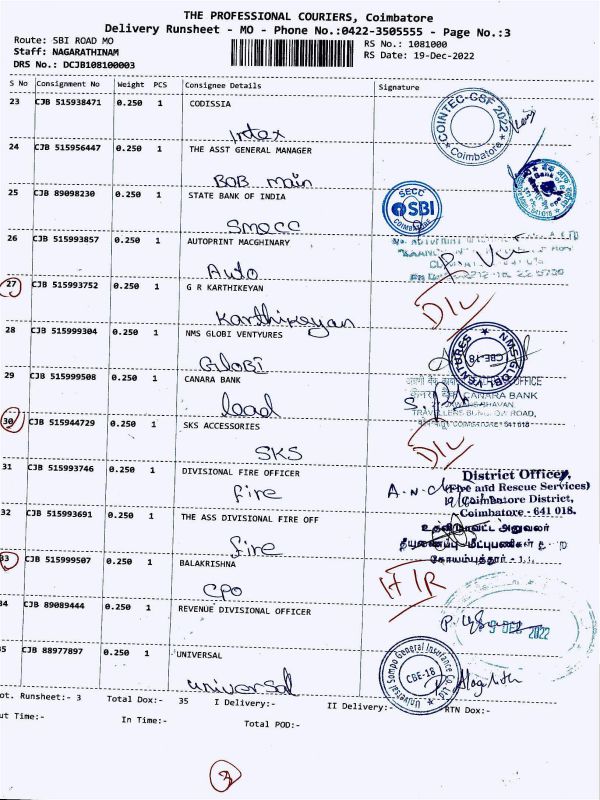 THE PROFESSIONAL COURIERS, Coimbatore
Delivery Runsheet - MO - Phone No.:0422-3505555 - Page No.:3
Route: SBI ROAD MO
RS No.: 1081000
Staff: NAGARATHINAM
RS Date: 19-Dec-2022
DRS No.: DCJB108100003
S No Consignment No Weight PCS Consignee Details Signature
23 CJB 515938471 0.250 1 CODISSIA
COINTEC-GSF 2022
Coimbatore
Intex
24 CJB 515956447 0.250 1 THE ASST GENERAL MANAGER
BOB main
25 CJB 89098230 0.250 1 STATE BANK OF INDIA
SECC
SBI
Coimbatore
Smecc
26 CJB 515993857 0.250 1 AUTOPRINT MACGHINARY
Auto
27 CJB 515993752 0.250 1 G R KARTHIKEYAN
D/L
Karthikeyan
28 CJB 515999304 0.250 1 NMS GLOBI VENTYURES
NMS GLOBI VENTURES
CBE-18
Globi
29 CJB 515999508 0.250 1 CANARA BANK
OFFICE
केनरा बैंक CANARA BANK
BHAVAN,
TRAVELLERS BUNGLOW ROAD,
COIMBATORE 641018
load
30 CJB 515944729 0.250 1 SKS ACCESSORIES
D/L
SKS
31 CJB 515993746 0.250 1 DIVISIONAL FIRE OFFICER
District Officer,
(Fire and Rescue Services)
Coimbatore District,
Coimbatore - 641 018.
fire
32 CJB 515993691 0.250 1 THE ASS DIVISIONAL FIRE OFF
உதவி மாவட்ட அலுவலர்
தீயணைப்பு மீட்புபணிகள்
கோயம்புத்தூர் -
fire
33 CJB 515999507 0.250 1 BALAKRISHNA
CPO
34 CJB 89089444 0.250 1 REVENUE DIVISIONAL OFFICER
9 DEC 2022
35 CJB 88977897 0.250 1 UNIVERSAL
Universal Sompo General Insurance Co. Ltd.
CBE-18
universal
ot. Runsheet:- 3 Total Dox:- 35 I Delivery:- II Delivery:- RTN Dox:-
ut Time:- In Time:- Total POD:-
3